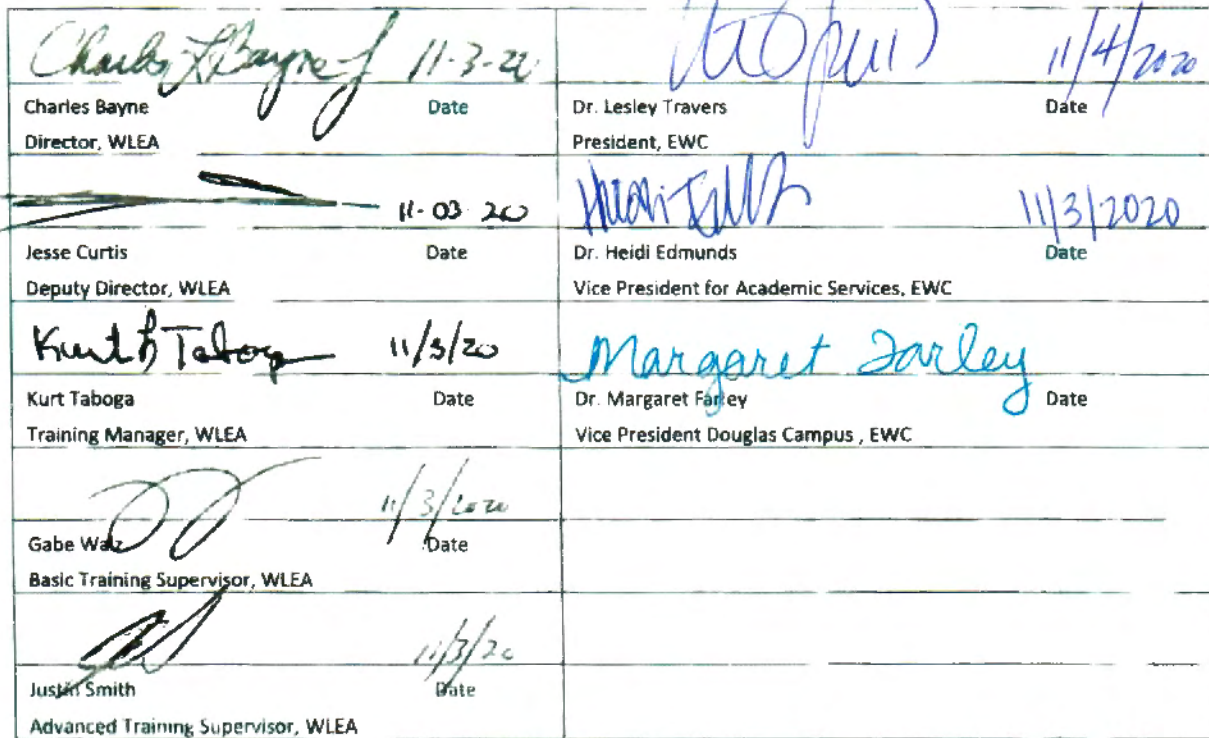 Charles L Bayne Jr 11-3-20
Charles Bayne Date
Director, WLEA
11-03-20
Jesse Curtis Date
Deputy Director, WLEA
Kurt Taboga 11/3/20
Kurt Taboga Date
Training Manager, WLEA
11/3/2020
Gabe Walz Date
Basic Training Supervisor, WLEA
11/3/20
Justin Smith Date
Advanced Training Supervisor, WLEA
11/4/2020
Dr. Lesley Travers Date
President, EWC
11/3/2020
Dr. Heidi Edmunds Date
Vice President for Academic Services, EWC
Margaret Farley
Dr. Margaret Farley Date
Vice President Douglas Campus , EWC